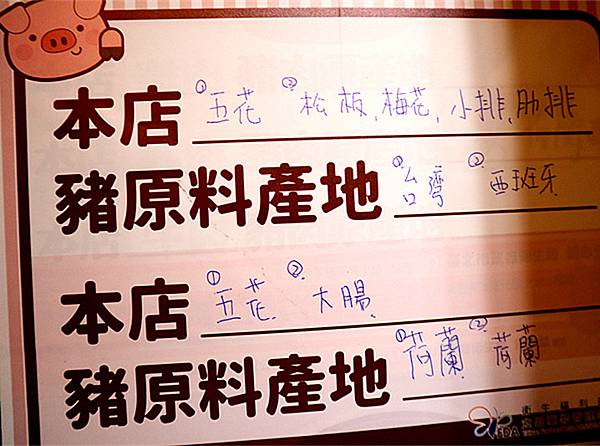 本店 ①五花 ②松板,梅花,小排,肋排
豬原料產地 ①台灣 ②西班牙
本店 ①五花 ②大腸
豬原料產地 ①荷蘭 ②荷蘭
衛生福利
FDA